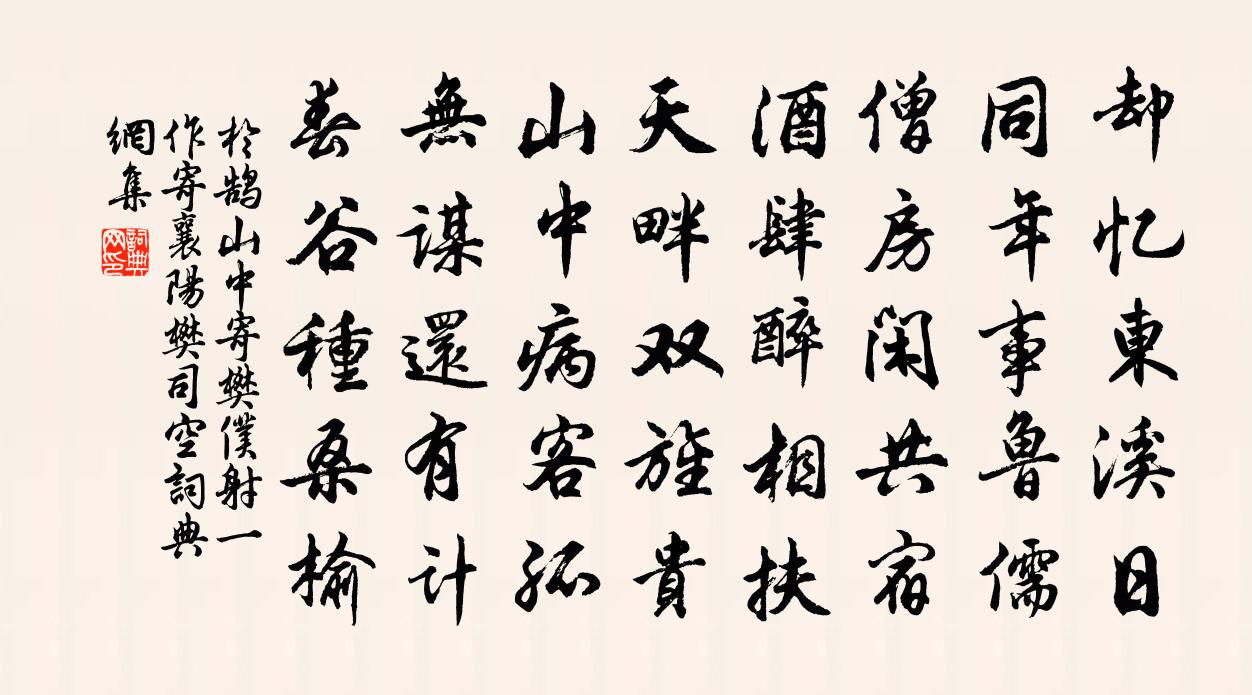 却忆東溪日
同年事魯儒
僧房闲共宿
酒肆醉相扶
天畔双旌貴
山中病客孤
無謀還有计
春谷種桑榆
於鹄山中寄樊僕射一
作寄襄陽樊司空詞典
網集
詞典網印